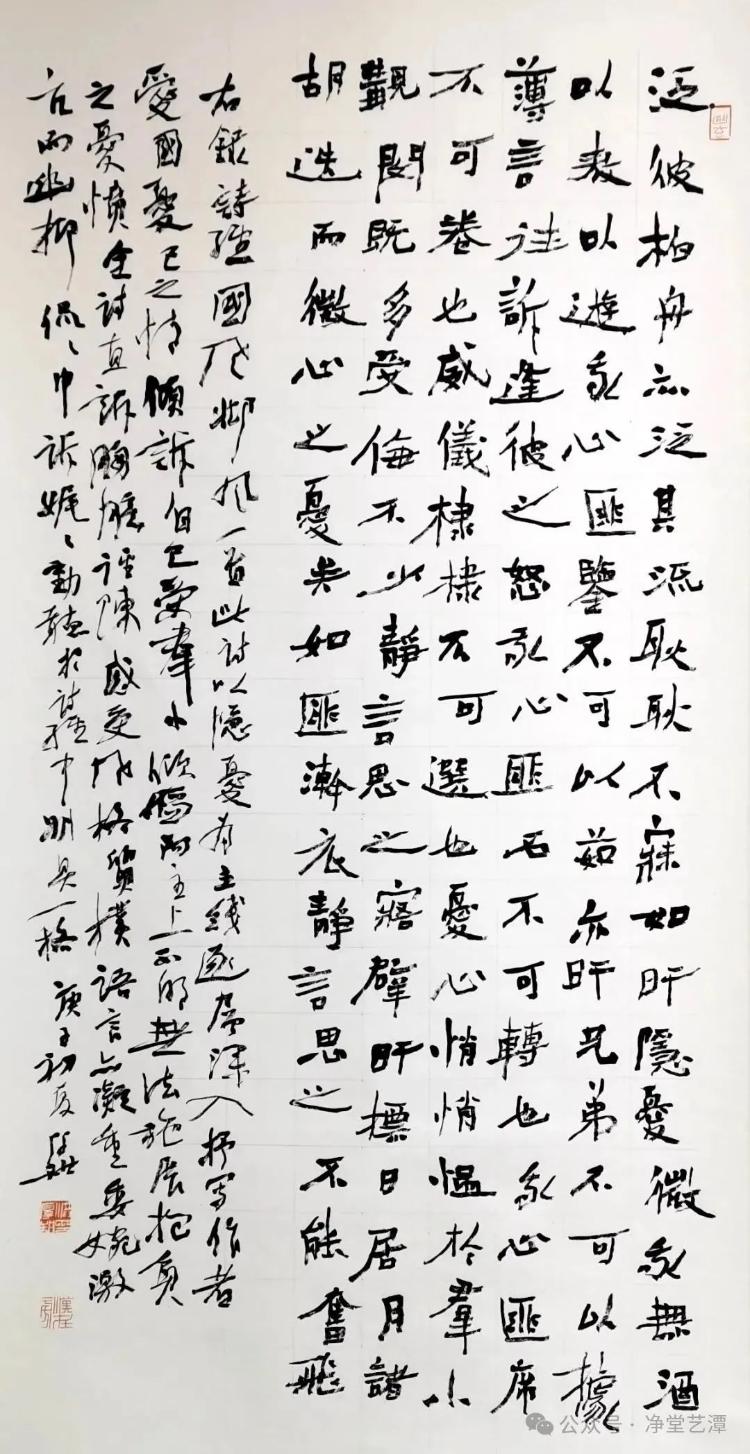 泛彼柏舟亦泛其流耿耿不寐如有隱憂微我無酒
以敖以遊我心匪鑒不可以茹亦有兄弟不可以據
薄言往訴逢彼之怒我心匪石不可轉也我心匪席
不可卷也威儀棣棣不可選也憂心悄悄慍於羣小
覯閔既多受侮不少靜言思之寤擘有摽日居月諸
胡迭而微心之憂矣如匪澣衣靜言思之不能奮飛
右錄詩經國風邶風一首此詩以隱憂為主綫逐層深入抒寫作者
愛國憂己之情傾訴自己受羣小傾而主上不明無法施展抱負
之憂憤全詩直訴胸臆陳感受風格質樸語言亦凝重委婉激
亢而幽抑侃侃申訴娓娓動聽於詩經中別具一格庚子初夏
公众号·净堂艺潭